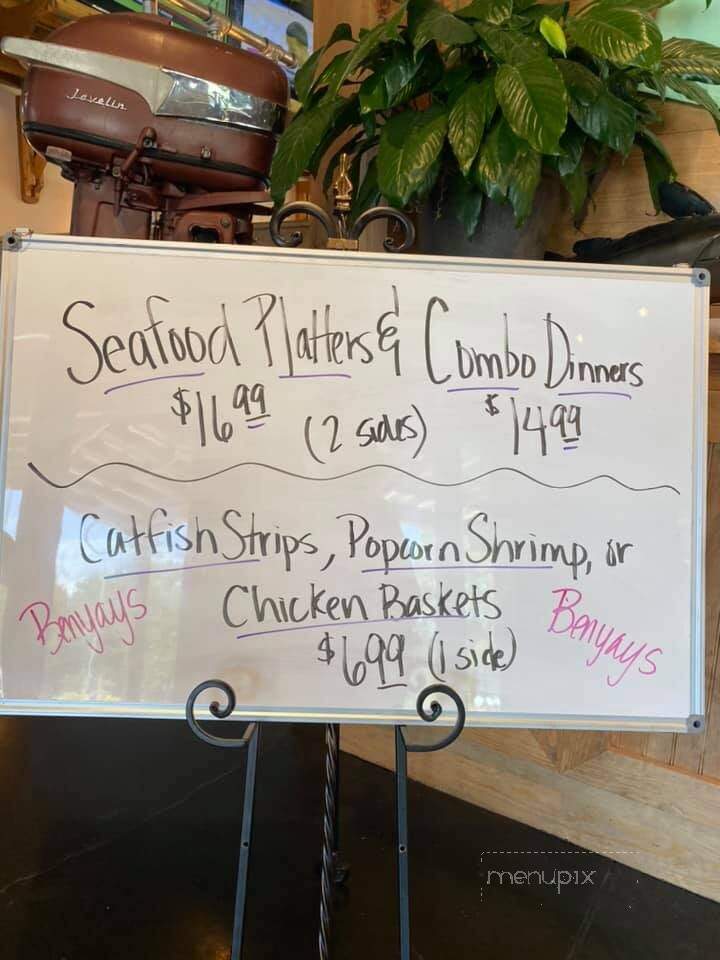 Javelin
Seafood Platters & Combo Dinners
$16.99 (2 sides) $14.99
Catfish Strips, Popcorn Shrimp, or
Benyays Chicken Baskets Benyays
$6.99 (1 side)
menupix